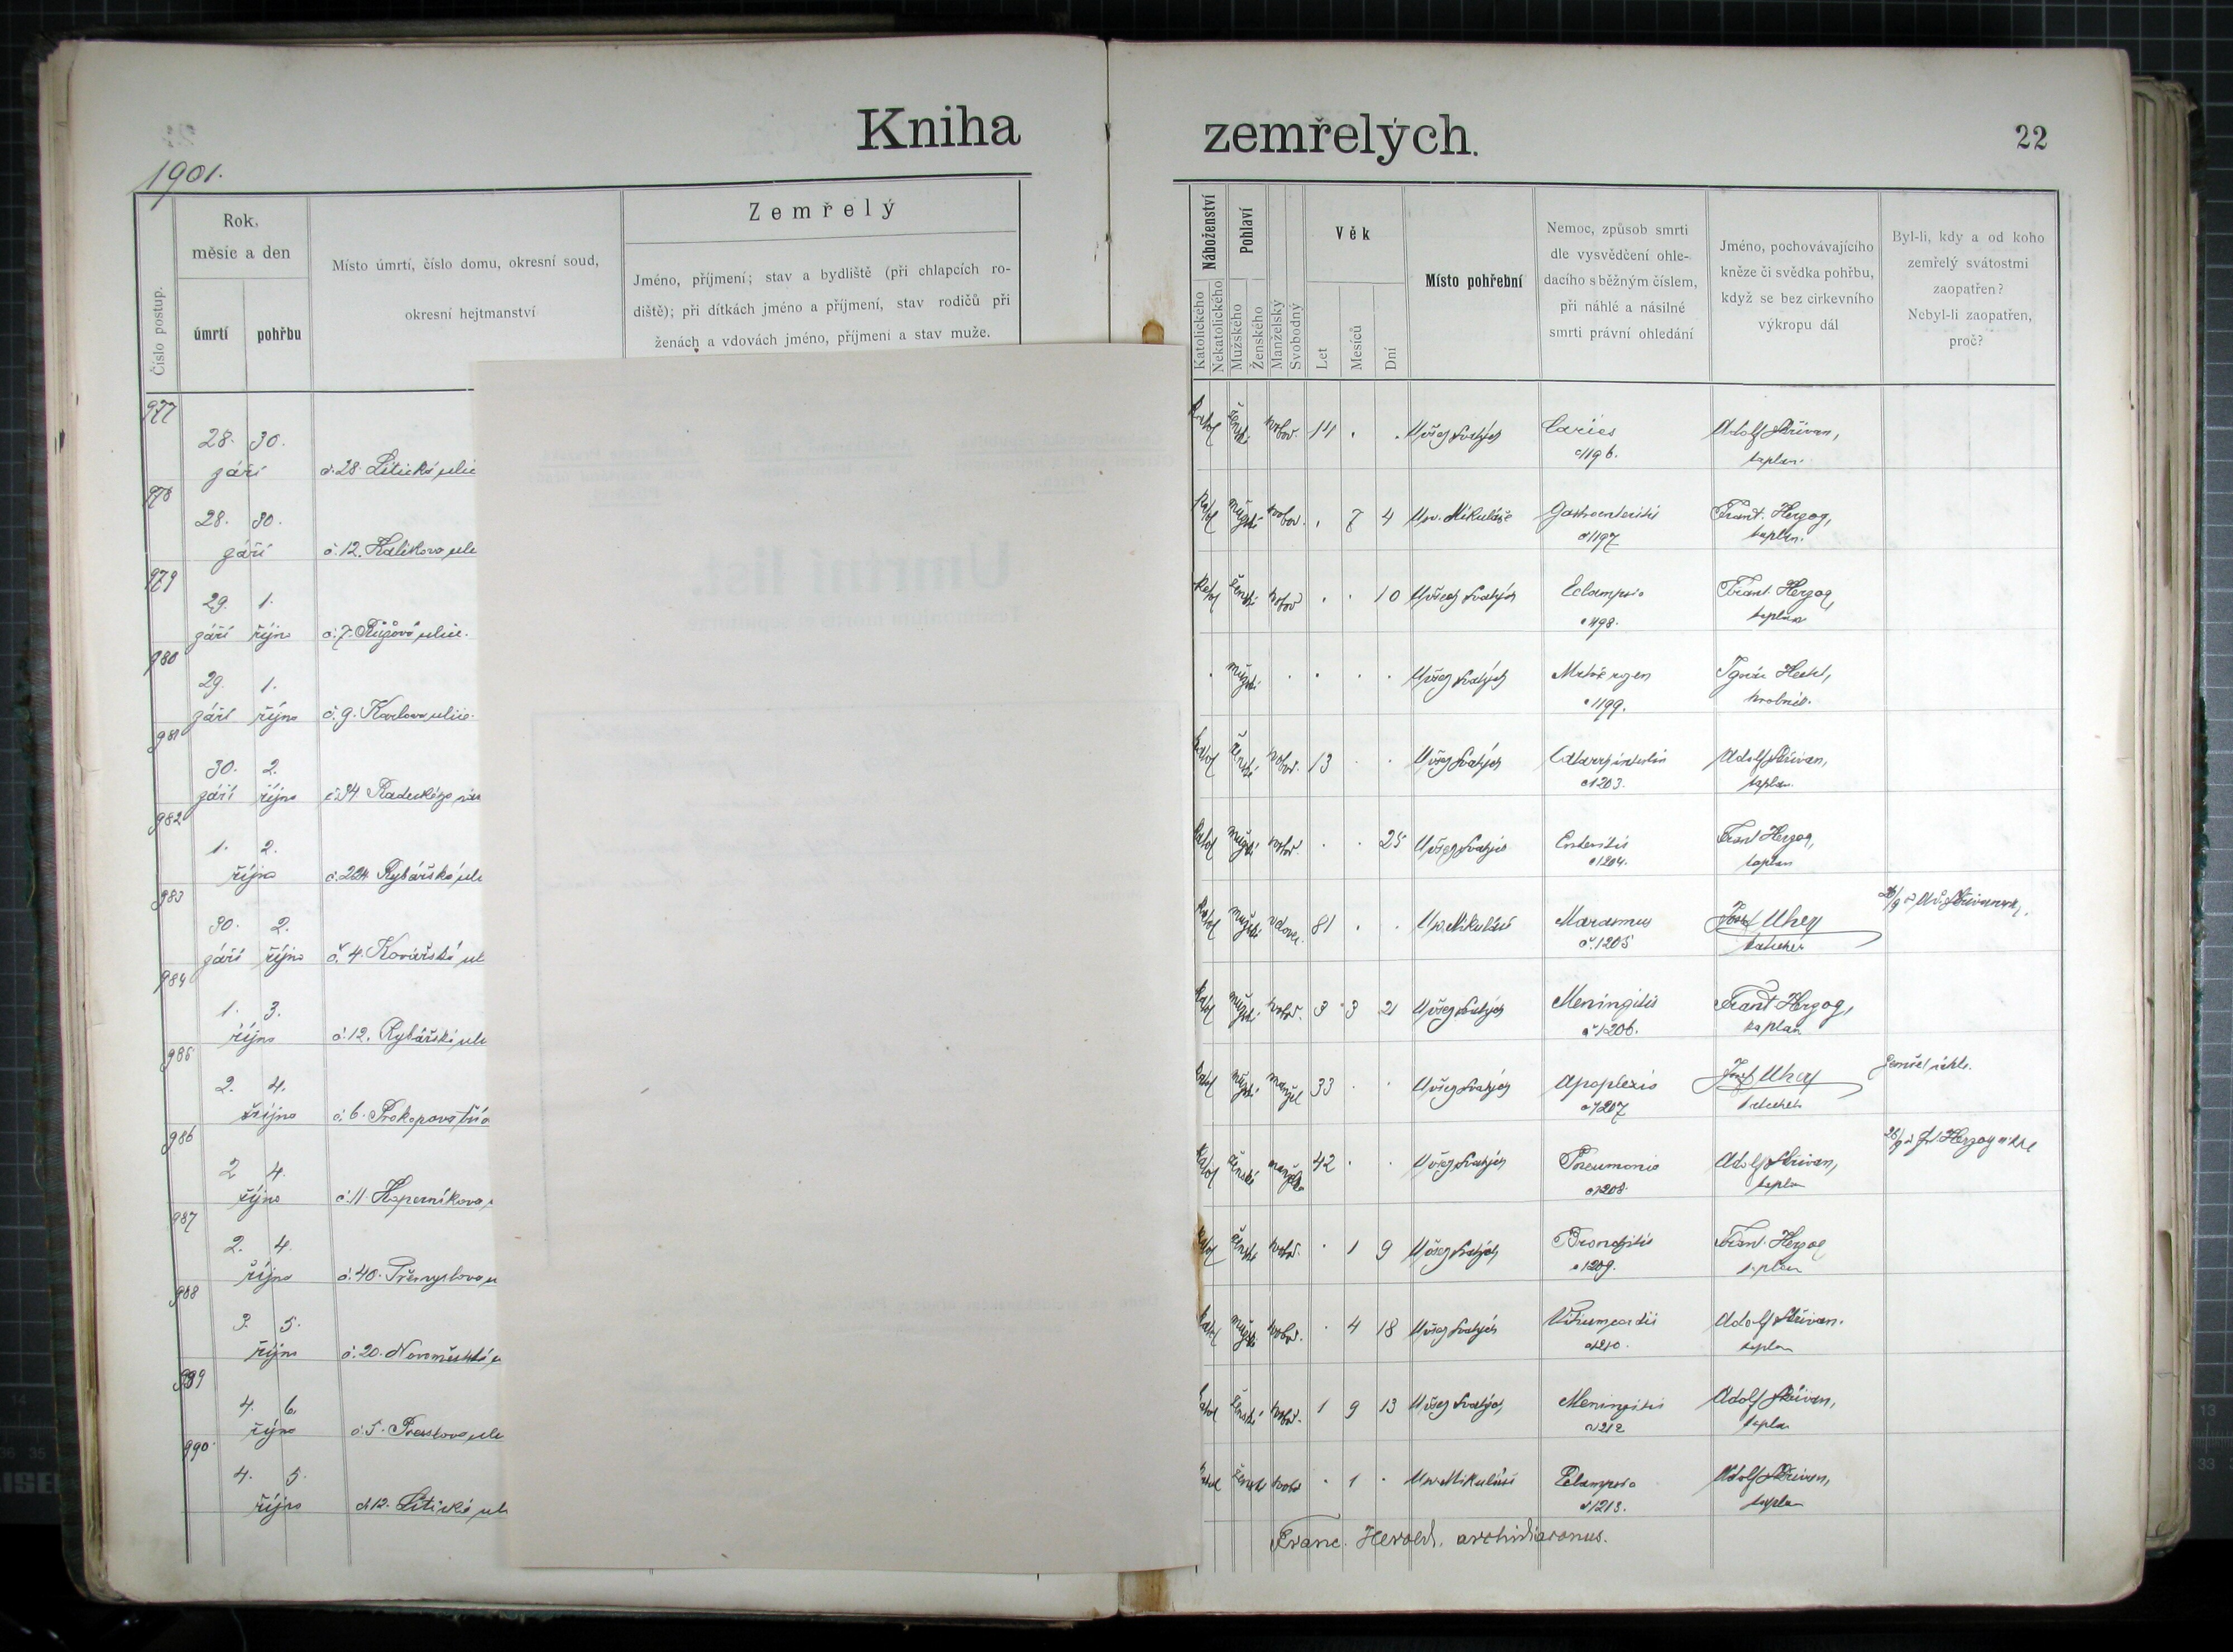 Kniha zemřelých.
22
1901.
Číslo postup.
Rok,
měsíc a den
úmrtí
pohřbu
Místo úmrtí, číslo domu, okresní soud,
okresní hejtmanství
Zemřelý
Jméno, příjmení; stav a bydliště (při chlapcích ro-
diště); při dítkách jméno a příjmení, stav rodičů při
ženách a vdovách jméno, příjmení a stav muže.
Náboženství
Katolického
Nekatolického
Pohlaví
Mužského
Ženského
Manželský
Svobodný
Věk
Let
Mesíců
Dní
Místo pohřební
Nemoc, způsob smrti
dle vysvědčení ohle-
dacího s běžným číslem,
při náhlé a násilné
smrti právní ohledání
Jméno, pochovávajícího
kněze či svědka pohřbu,
když se bez církevního
výkropu dál
Byl-li, kdy a od koho
zemřelý svátostmi
zaopatřen?
Nebyl-li zaopatřen,
proč?
977
28. 30.
září
č. 28. Litická ulic
Katol ženské svobod. 14 U všech Svatých Caries
č 1196.
Adolf Skřivan,
kaplan.
978
28. 30.
září
č. 12. Kalikova ul
Katol mužské svobod. 7 4 U sv. Mikuláše Gastroenteritis
č 1197
Frant. Herzog,
kaplan.
979
29. 1.
září října
č. 7. Růžová ulice.
Katol ženské svobod 10 U všech Svatých Eclampsia
Frant. Herzog,
kaplan
980
29. 1.
září října
č. 9. Karlova ulice.
mužské U všech Svatých Mrtvě rozen
č 1199.
Ignác Hechl,
hrobník.
981
30. 2.
září října
č. 34 Radeckého
Katol ženské svobod. 13 U všech Svatých
č 1203.
Adolf Skřivan,
kaplan.
982
1. 2.
října
č. 224 Rybářská ul
Katol mužské svobod. 25 U všech Svatých Enteritis
č 1204.
Frant Herzog,
kaplan
983
30. 2.
září října
č. 4. Kovářská ul
Katol mužské vdovec 81 U sv. Mikuláše Marasmus
č. 1205
Josef Uhey
katecheta
984
1. 3.
října
č. 12. Rybářská ul
Katol mužské svobod. 3 3 21 U všech Svatých Meningitis
č 1206.
Frant Herzog,
kaplan
985
2. 4.
října
č. 6. Prokopova tří
Katol mužské manžel 33 U všech Svatých Apoplexia
č 1207
Josef Uhey
Zemřel náhle.
986
2 4.
října
č. 11. Koperníkova
Katol ženské manželka 42 U všech Svatých Pneumonia
č 1208.
Adolf Skřivan,
kaplan
987
2. 4.
října
č. 40. Přemyslova u
Katol ženské svobod. 1 9 U všech Svatých Bronchitis
č 1209.
Frant. Herzog
kaplan
988
3. 5.
října
č. 20. Novoměstská u
Katol mužské svobod. 4 18 U všech Svatých Vitium cordis
č 1210.
Adolf Skřivan.
kaplan
989
4. 6.
října
č. 5. Presslova ul
Katol ženské svobod. 1 9 13 U všech Svatých Meningitis
č 1212
Adolf Skřivan,
kaplan
990
4. 5.
října
č 12. Litická ul
Katol ženské svobod 1 U sv. Mikuláše Eclampsia
č 1213.
Adolf Skřivan,
kaplan
Franc. Herold, archidiaconus.